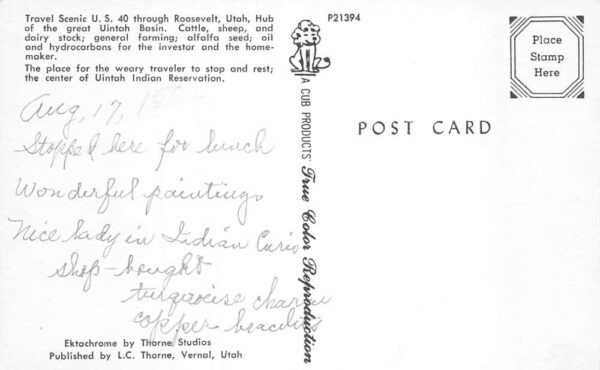 Travel Scenic U. S. 40 through Roosevelt, Utah, Hub
of the great Uintah Basin. Cattle, sheep, and
dairy stock; general farming; alfalfa seed; oil
and hydrocarbons for the investor and the home-
maker.
The place for the weary traveler to stop and rest;
the center of Uintah Indian Reservation.
Aug, 17,
Stopped here for lunch
Wonderful paintings
Nice lady in Indian Curio
shop - bought
turquoise charm
copper bracelets
Ektachrome by Thorne Studios
Published by L.C. Thorne, Vernal, Utah
P21394
A CUB PRODUCTS' True Color Reproduction
POST CARD
Place
Stamp
Here